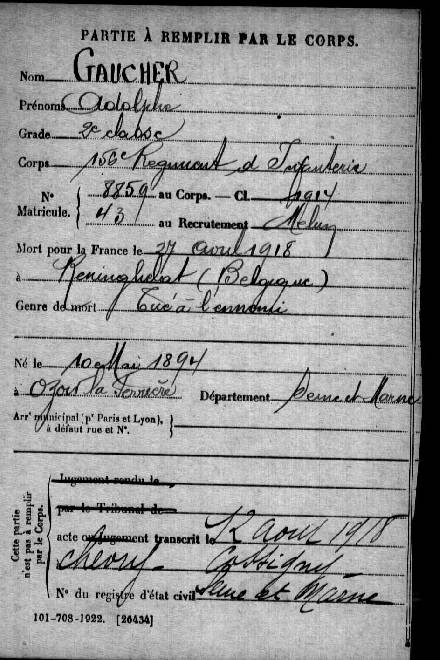 PARTIE À REMPLIR PAR LE CORPS.
Nom GAUCHER
Prénoms Adolphe
Grade 2e classe
Corps 156e Régiment d'Infanterie
N° Matricule. { 8859 au Corps. — Cl. 1914
43 au Recrutement Melun
Mort pour la France le 27 avril 1918
à Reninghelst (Belgique)
Genre de mort Tué à l'ennemi
Né le 10 Mai 1894
à Ozoir la Ferrière Département Seine et Marne
Arrt municipal (pr Paris et Lyon), à défaut rue et N°. }
Cette partie n'est pas à remplir par le Corps.
Jugement rendu le
par le Tribunal de
acte ou jugement transcrit le 12 août 1918
Chevry-Cossigny
N° du registre d'état civil Seine et Marne
101-708-1922. [26434]